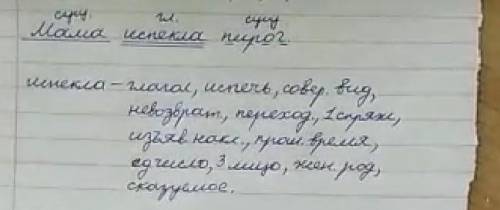 сущ. гл. сущ
Мама испекла пирог.
испекла – глагол, испечь, совер. вид,
невозврат., переход., 1 спряж,
изъяв накл., прош. время,
ед число, 3 лицо, жен. род,
сказуемое.